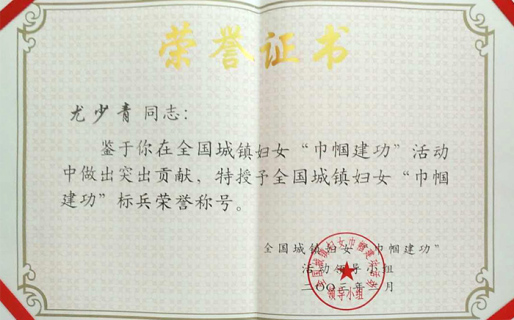 荣誉证书
尤少青 同志：
鉴于你在全国城镇妇女“巾帼建功”活动
中做出突出贡献，特授予全国城镇妇女“巾帼
建功”标兵荣誉称号。
全国城镇妇女“巾帼建功”
活动领导小组
二〇〇三年二月
领导小组